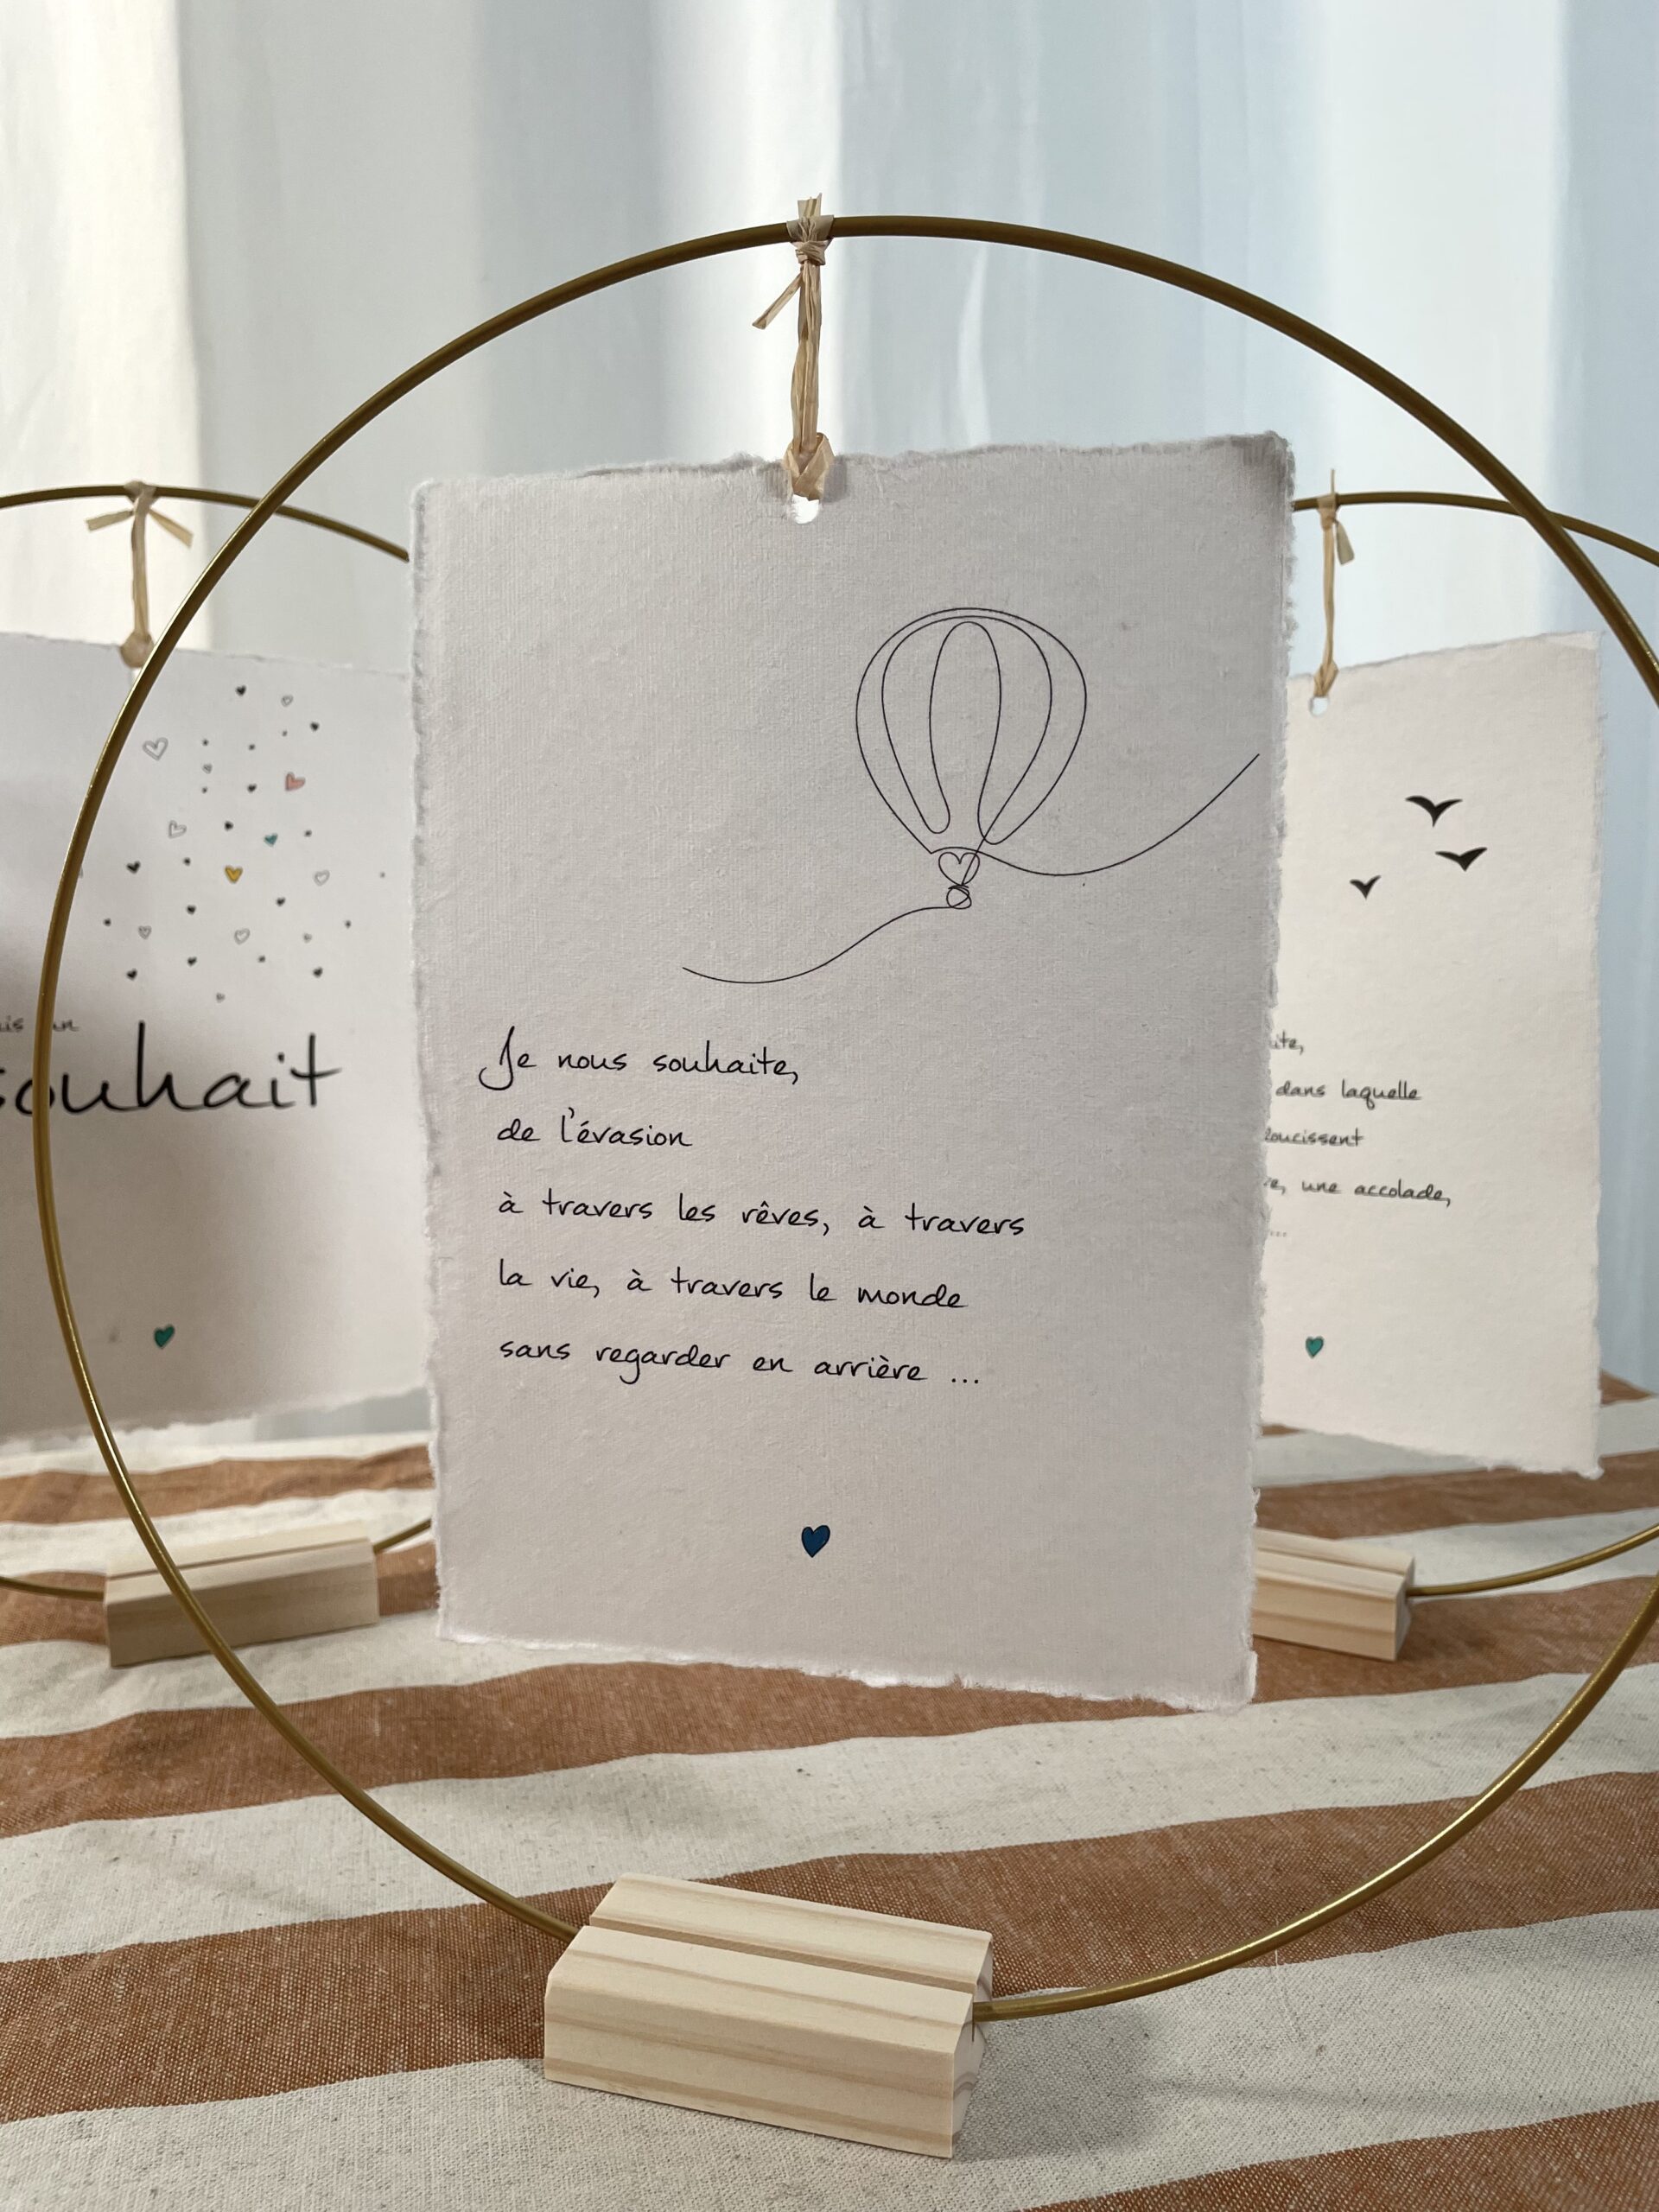 un
souhait
Je nous souhaite,
de l'évasion
à travers les rêves, à travers
la vie, à travers le monde
sans regarder en arrière ...
dans laquelle
une accolade,
...